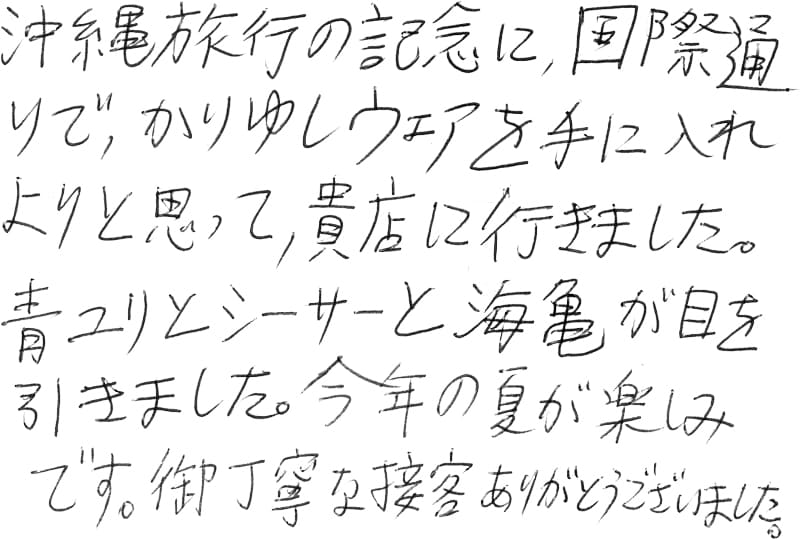 沖縄旅行の記念に,国際通
りで,かりゆしウェアを手に入れ
ようと思って,貴店に行きました。
青ユリとシーサーと海亀が目を
引きました。今年の夏が楽しみ
です。御丁寧な接客ありがとうございました。